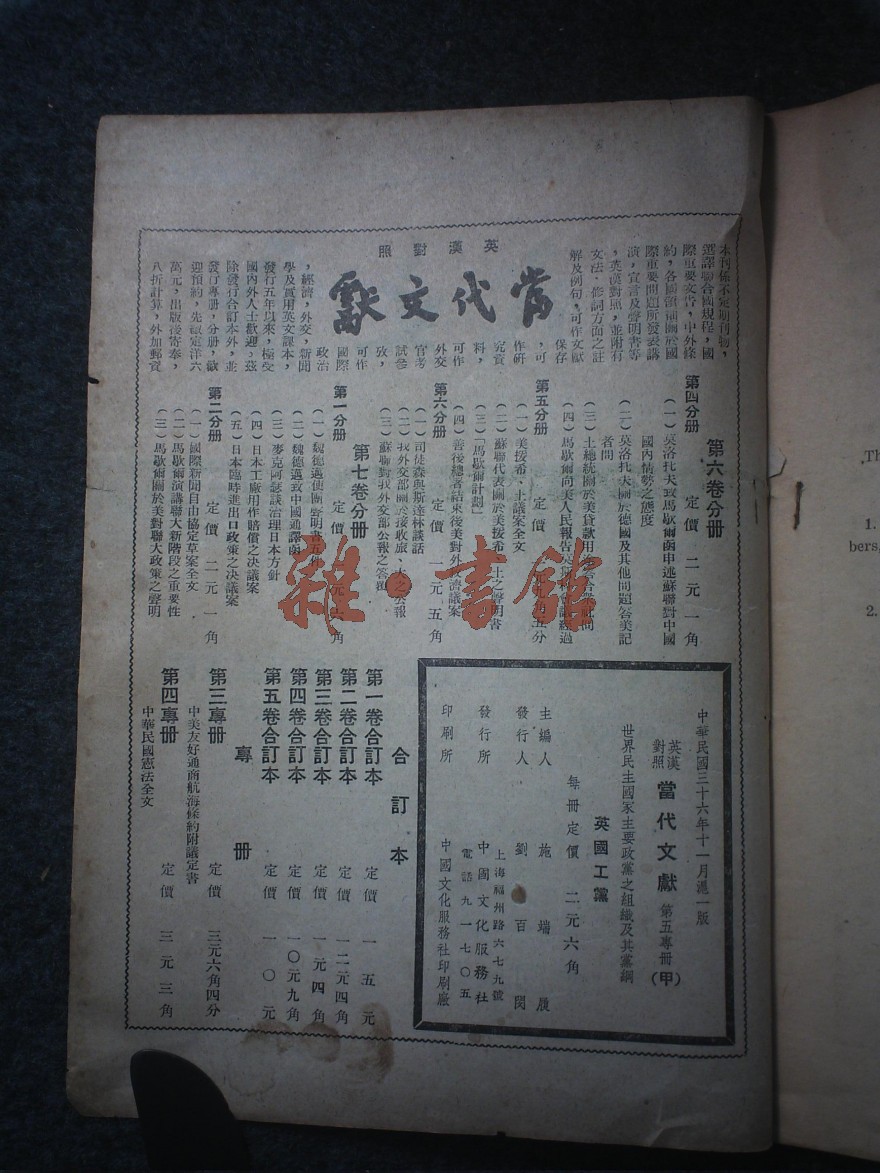 英漢對照
當代文獻
本刊係不定期刊物，
選譯聯合國規程，國
際重要文告，中外條
約，各國領袖關於國
際重要問題所發表講
演，宣言及聲明書等
，英漢對照，並附有
文法、修詞方面之註
解及例句，可作文獻
保存
，可
作研
究資
料，
可作
外交
官考
試參
攷，
可作
國際
政治
，經濟，外交，新聞
學及實用英文課本，
發行五年以來，極受
國內外人士歡迎，茲
除發行合訂本外，並
發行專冊，分冊，歡
迎預約，先繳定洋六
萬元，出版後寄奉，
八折計算，外加郵資
第六卷分册
第四分册 定價 二元一角
（一）莫洛托夫致馬歇爾函申述蘇聯對中國
國內情勢之態度
（二）莫洛托夫關於德國及其他問題答美記
者問
（三）土總統關於美貸款用
（四）馬歇爾向美人民報告 經過
第五分册 定價 元九角五分
（一）美援希、土議案全文
（二）蘇聯代表關於美援希土之聲明書
（三）「馬歇爾計劃」
（四）善後總署結束後美對外救濟議案
第六分册 定價 一元五角
（一）司徒森與斯達林談話
（二）我外交部關於接收旅、大之公報
（三）蘇聯對我外交部公報之答覆
第七卷分册
第一分册 定價 元 角
（一）魏德邁使團聲明書五件
（二）魏德邁致中國通譯函
（三）麥克阿瑟談治理日本方針
（四）日本工廠用作賠償之決議案
（五）日本臨時進出口政策之決議案
第二分册 定價 二元一角
（一）國際新聞自由協定草案全文
（二）馬歇爾演講聯大新階段之重要性
（三）馬歇爾關於美對聯大政策之聲明
中華民國三十六年十一月滬一版
英漢對照 當代文獻 第五專冊（甲）
世界民主國家主要政黨之組織及其黨綱
英國工黨
每冊定價 二元六角
主編人 施端履
發行人 劉百閔
發行所 中國文化服務社
上海福州路六七九號
電話九一七〇五
印刷所 中國文化服務社印刷廠
合訂本
第一卷合訂本 定價 一五元
第二卷合訂本 定價 一二元四角
第三卷合訂本 定價 一一元四角
第四卷合訂本 定價 一〇元九角
第五卷合訂本 定價 一〇元
專册
第三專册 定價 三元六角四分
中美友好通商航海條約附議定書
第四專册 定價 三元三角
中華民國憲法全文
雜·書館
Th
1.
bers,
2.